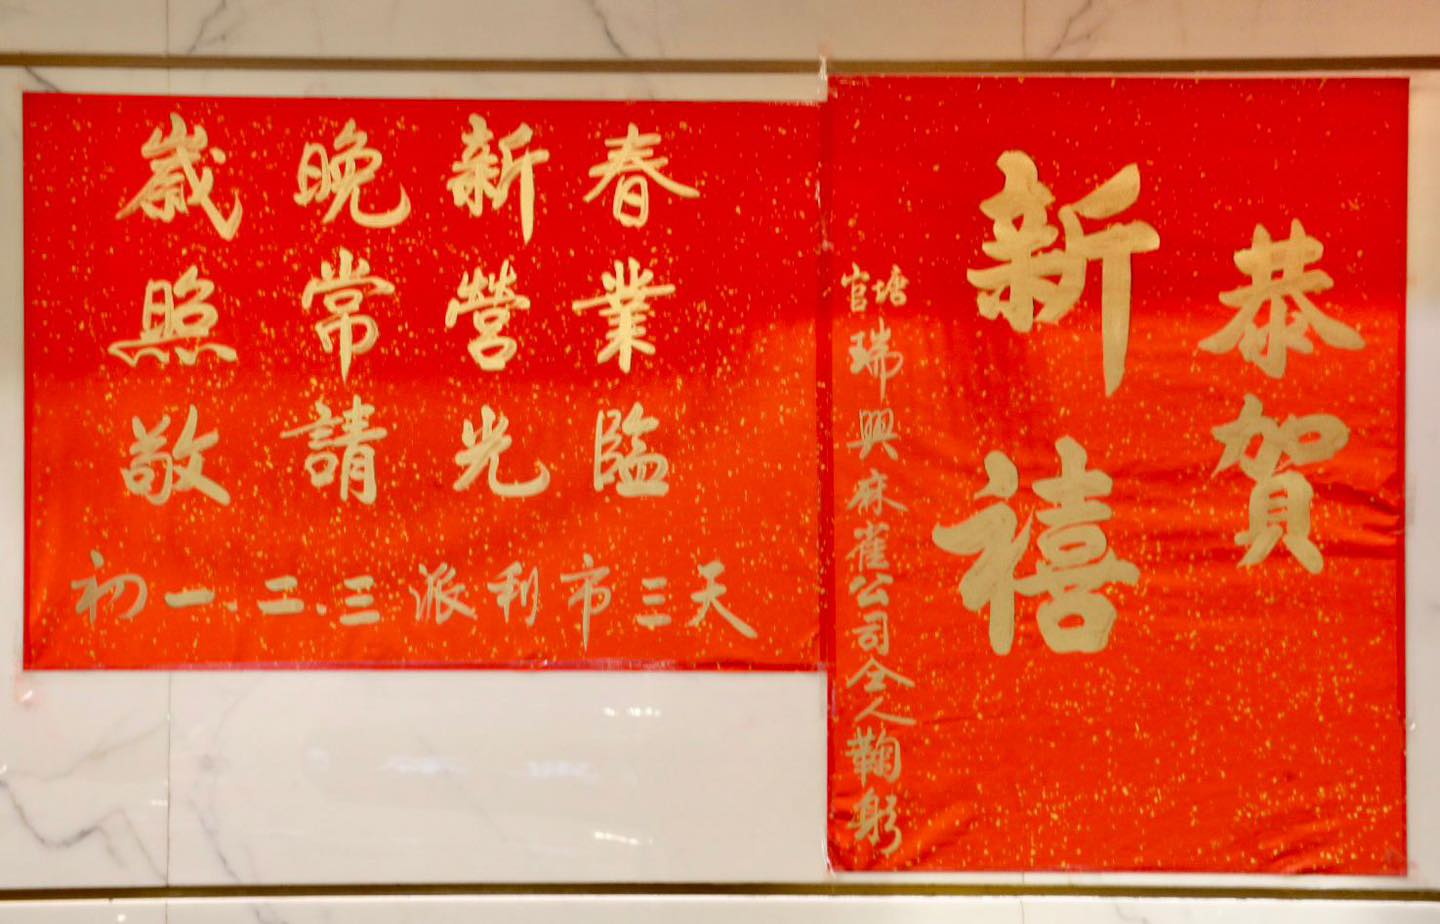 嵗晚新春
照常營業
敬請光臨
初一.二.三派利市三天
恭賀
新禧
官塘瑞興麻雀公司仝人鞠躬